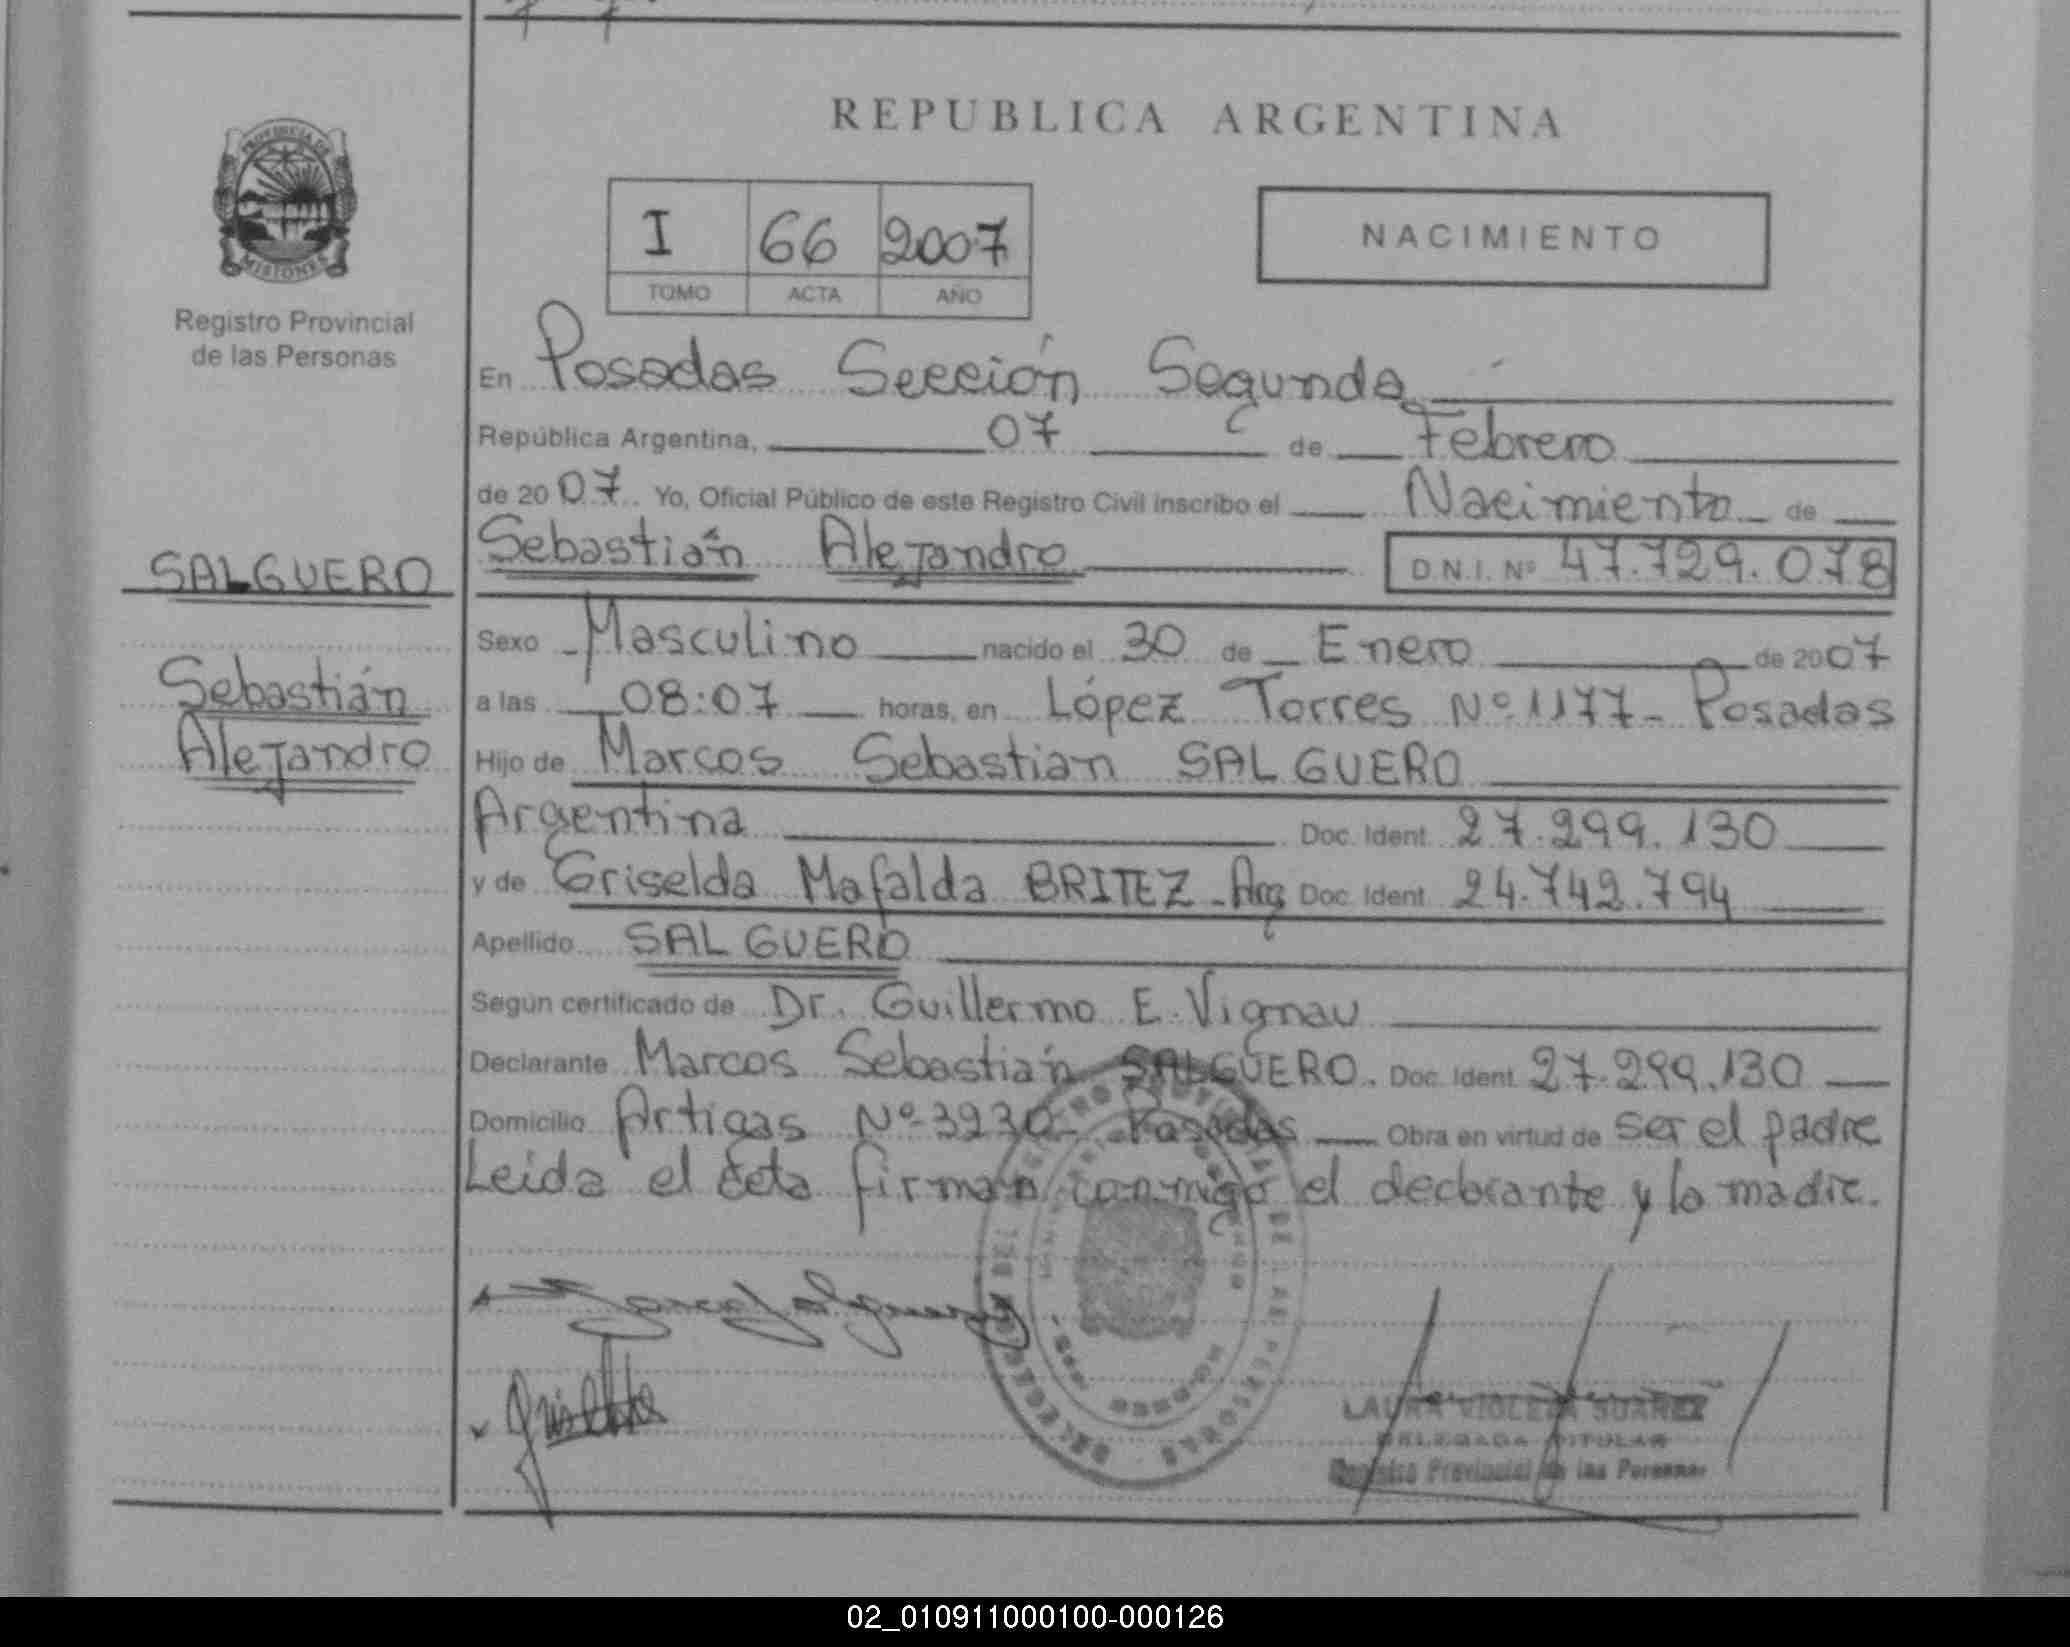 REPUBLICA ARGENTINA
PROVINCIA DE
MISIONES
Registro Provincial
de las Personas
I 66 2007
TOMO ACTA AÑO
NACIMIENTO
En Posadas Sección Segunda
República Argentina, 07 de Febrero
de 2007 Yo, Oficial Público de este Registro Civil inscribo el Nacimiento de
Sebastián Alejandro D.N.I. Nº 47.729.078
SALGUERO
Sebastián
Alejandro
Sexo Masculino nacido el 30 de Enero de 2007
a las 08:07 horas, en López Torres Nº 1177 - Posadas
Hijo de Marcos Sebastian SALGUERO
Argentina Doc. Ident. 27.299.130
y de Griselda Mafalda BRITEZ - Arg Doc. Ident. 24.742.794
Apellido SALGUERO
Según certificado de Dr. Guillermo E. Vignau
Declarante Marcos Sebastián SALGUERO. Doc. Ident. 27.299.130
Domicilio Artigas Nº 3930 - Posadas Obra en virtud de ser el padre
Leida el acta firman conmigo el declarante y la madre.
Marcos Salguero
Griselda
LAURA VIOLETA SUAREZ
DELEGADA TITULAR
Registro Provincial de las Personas
02_010911000100-000126